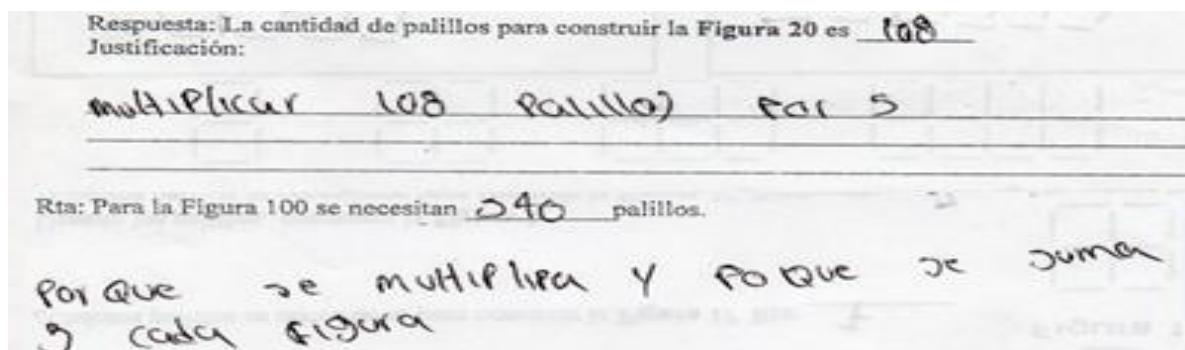 Respuesta: La cantidad de palillos para construir la Figura 20 es 108
Justificación:
multiplicar 108 Palillos Por 5
Rta: Para la Figura 100 se necesitan 540 palillos.
Por Que se multiplica y Po Que se suma
5 cada figura